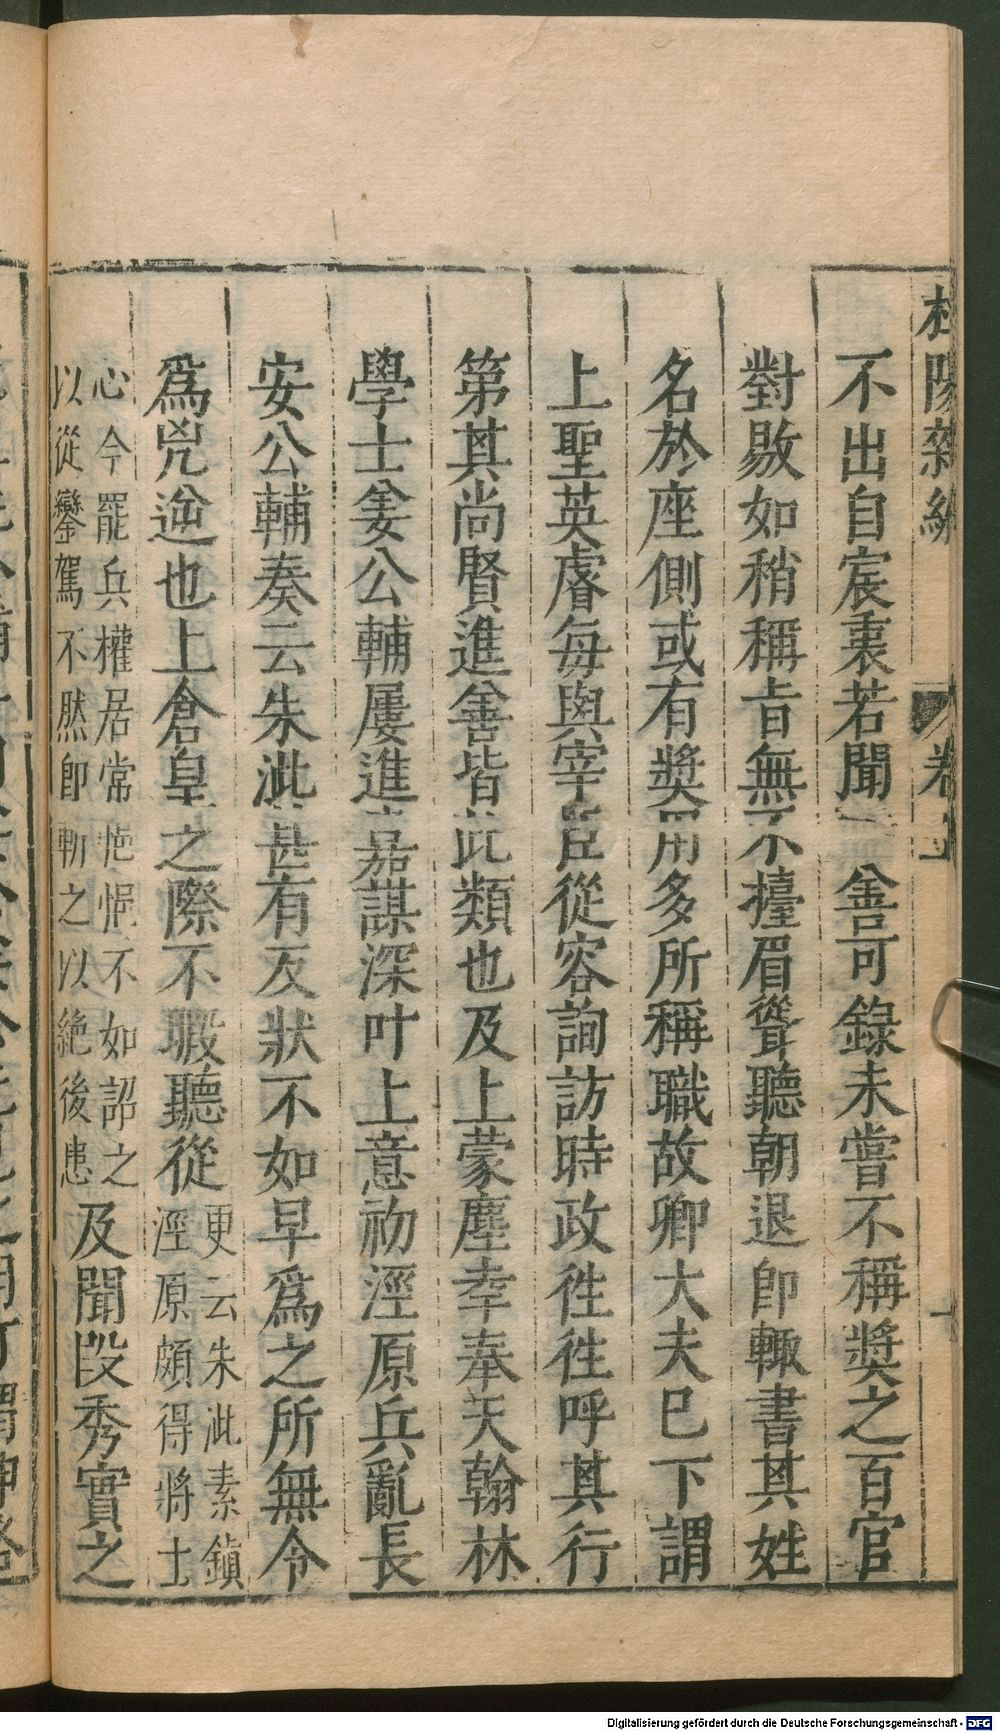 杜陽雜編
卷上
不出自宸衷若聞一善可錄未嘗不稱獎之百官
對敭如稍稱旨無不擡眉聳聽朝退即輙書其姓
名於座側或有獎用多所稱職故卿大夫已下謂
上聖英睿每與宰臣從容詢訪時政徃徃呼其行
第其尚賢進善皆此類也及上蒙塵幸奉天翰林
學士姜公輔屢進嘉謀深叶上意初涇原兵亂長
安公輔奏云朱泚甚有反狀不如早爲之所無令
爲兇逆也上倉皇之際不暇聽從更云朱泚素鎮
涇原頗得將士
心今罷兵權居常悒悒不如詔之
以從鑾駕不然即斬之以絶後患及聞段秀實之
Digitalisierung gefördert durch die Deutsche Forschungsgemeinschaft - DFG